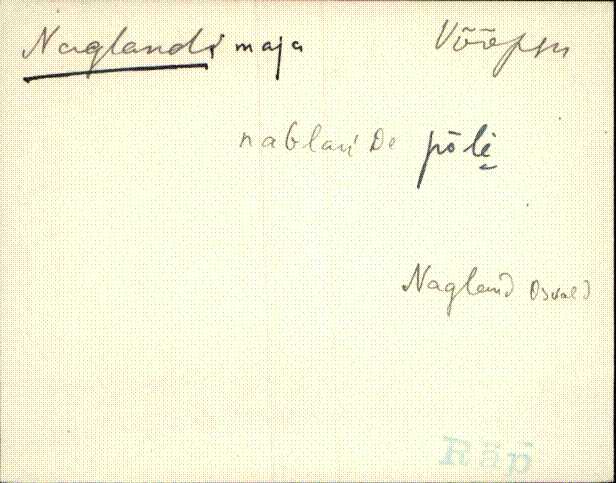 Naglandi maja Vööpsu
nablan'De põli̮
Nagland Osvald
Räp